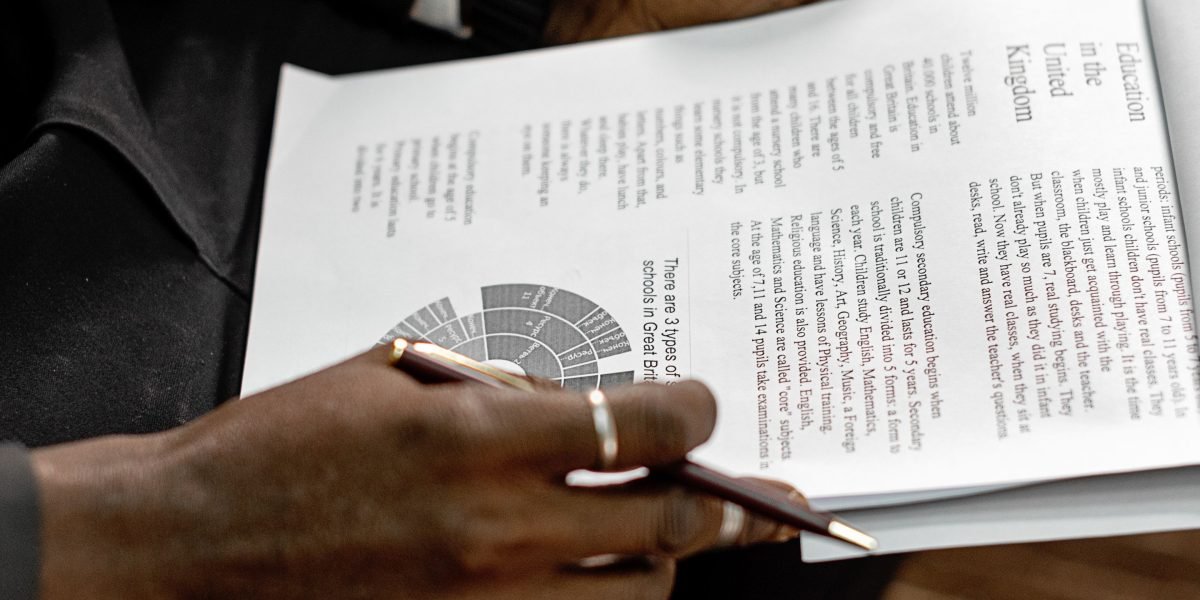 Education
in the
United
Kingdom
Twelve million
children attend about
40 000 schools in
Britain. Education in
Great Britain is
compulsory and free
for all children
between the ages of 5
and 16. There are
many children who
attend a nursery school
from the age of 3, but
it is not compulsory. In
nursery schools they
learn some elementary
things such as
numbers, colours, and
letters. Apart from that,
babies play, have lunch
and sleep there.
Whatever they do,
there is always
someone keeping an
eye on them.
Compulsory education
begins at the age of 5
when children go to
primary school.
Primary education lasts
for 6 years. It is
divided into two
periods: infant schools (pupils from 5 to 7 years
and junior schools (pupils from 7 to 11 years old). In
infant schools children don't have real classes. They
mostly play and learn through playing. It is the time
when children just get acquainted with the
classroom, the blackboard, desks and the teacher.
But when pupils are 7, real studying begins. They
don't already play so much as they did it in infant
school. Now they have real classes, when they sit at
desks, read, write and answer the teacher's questions.
Compulsory secondary education begins when
children are 11 or 12 and lasts for 5 years. Secondary
school is traditionally divided into 5 forms: a form to
each year. Children study English, Mathematics,
Science, History, Art, Geography, Music, a Foreign
language and have lessons of Physical training.
Religious education is also provided. English,
Mathematics and Science are called "core" subjects.
At the age of 7,11 and 14 pupils take examinations in
the core subjects.
There are 3 types of
schools in Great